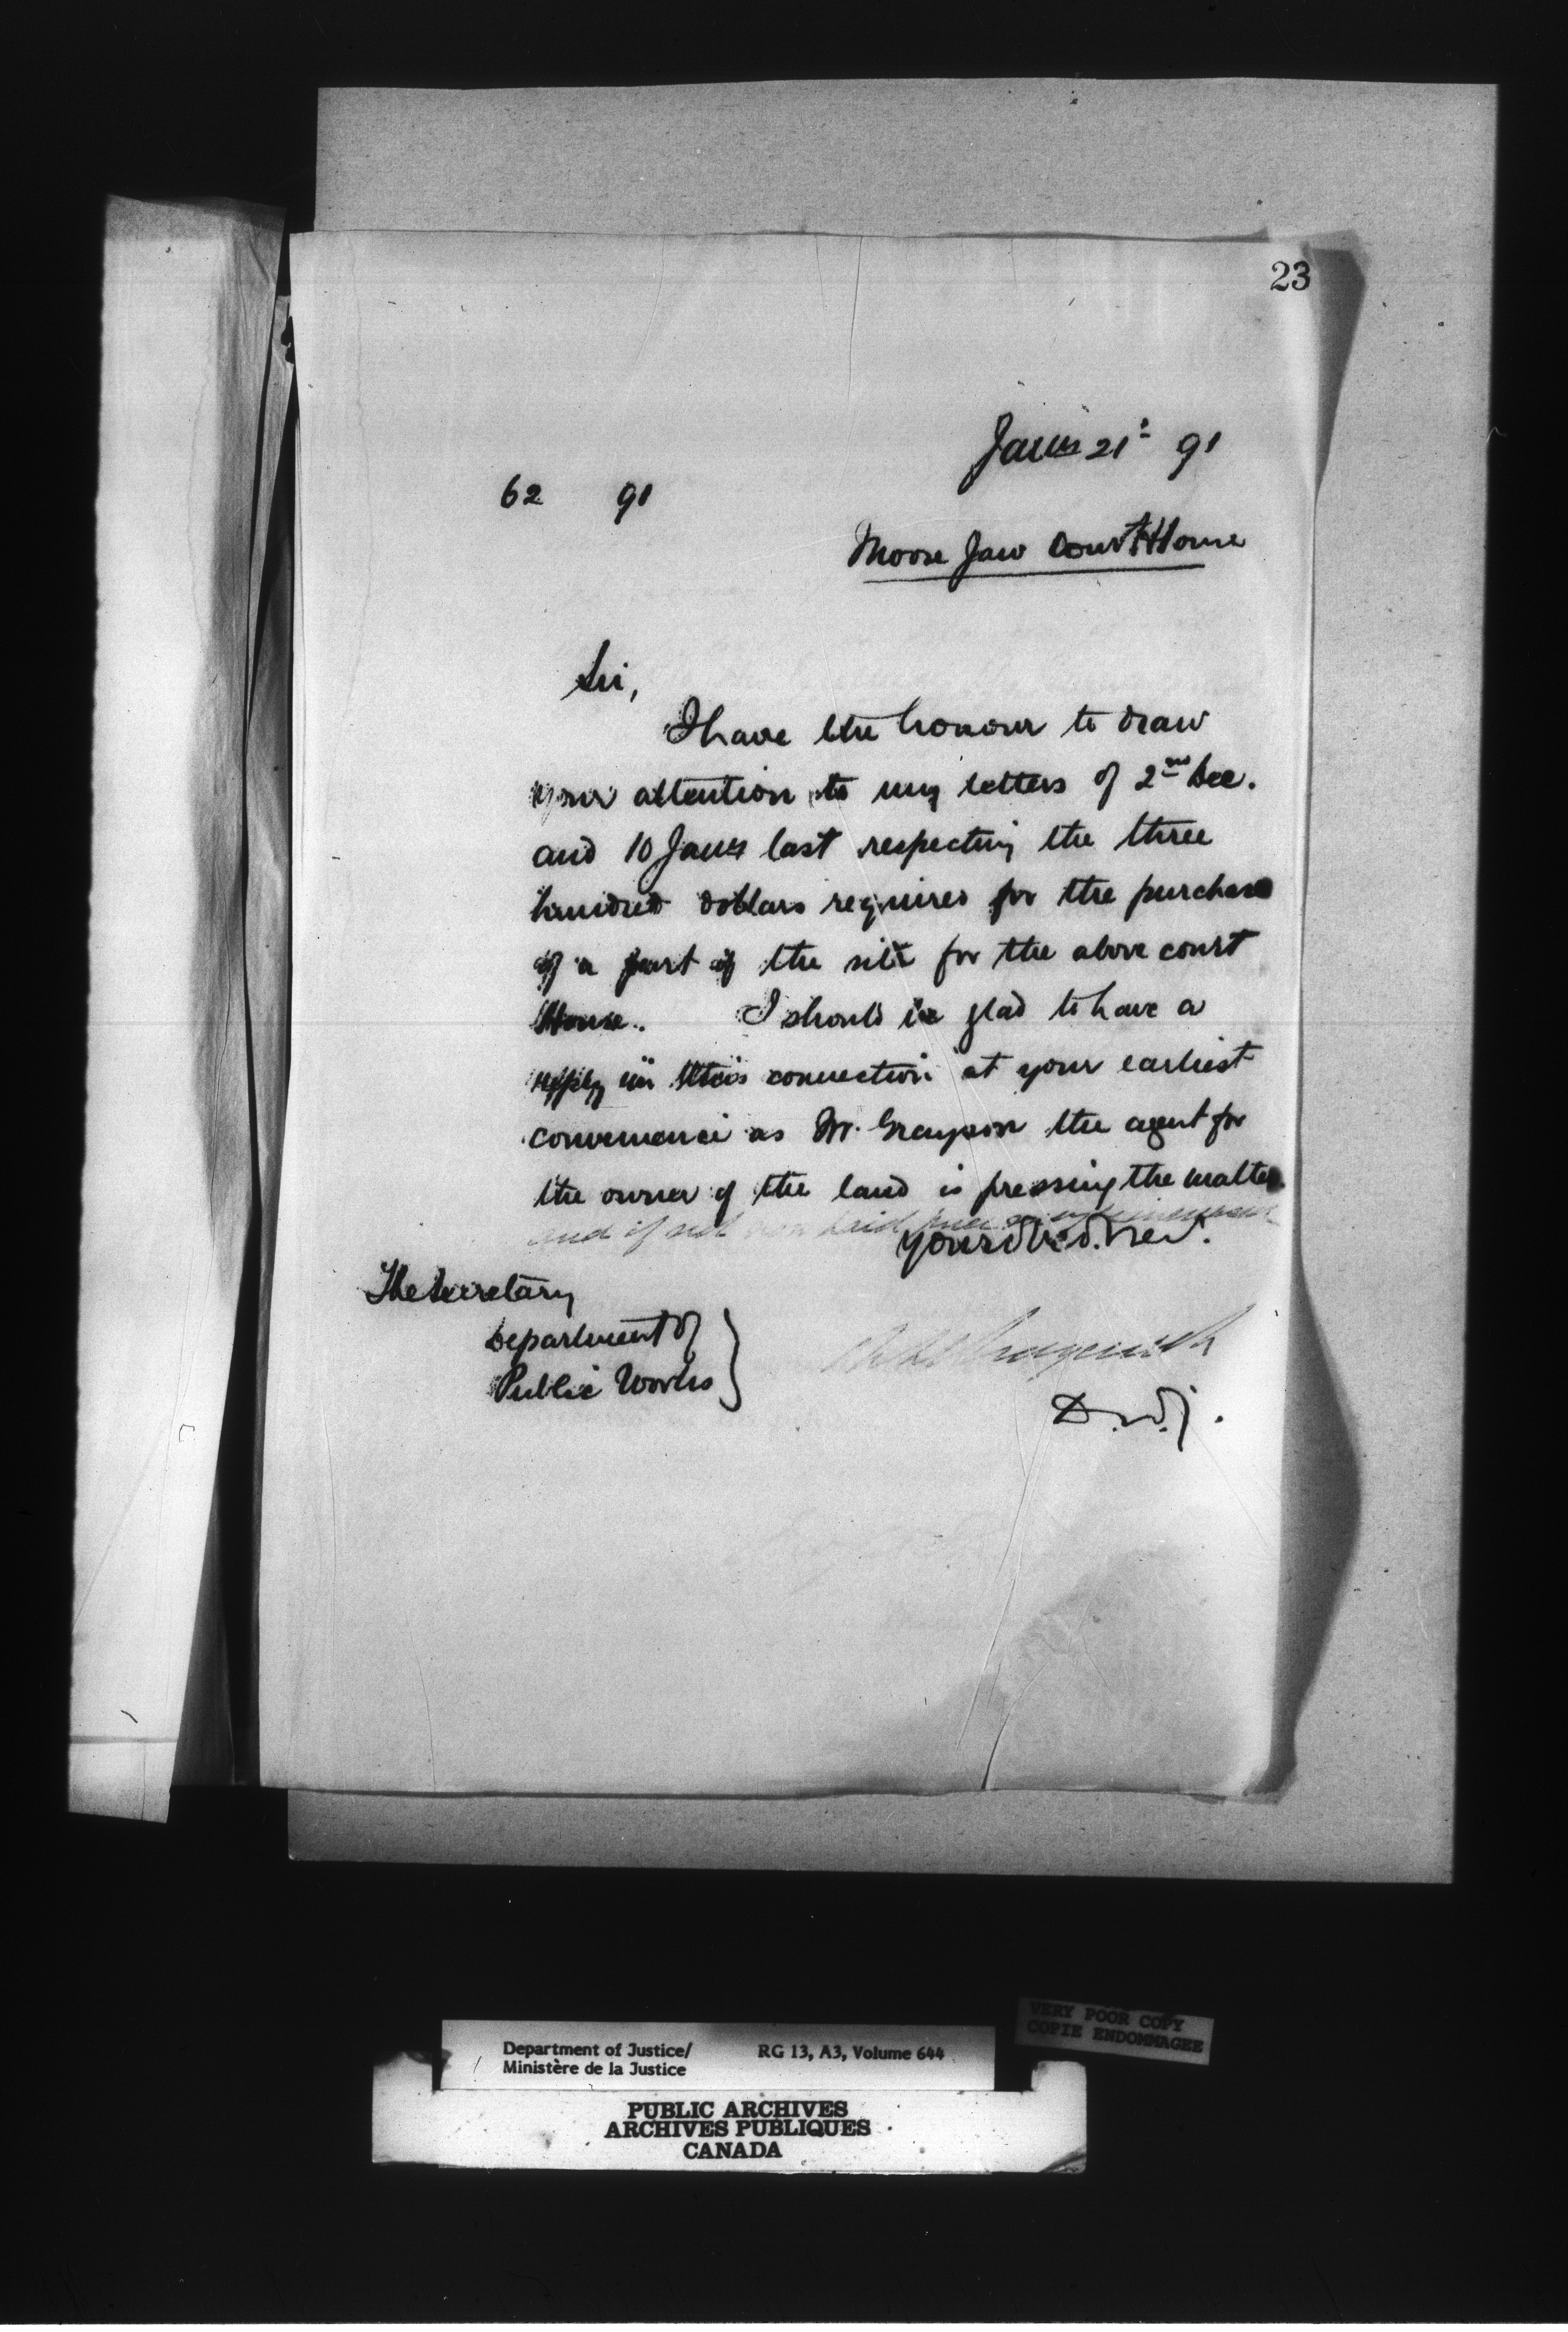 23
Jany 21st 91
62 91
Moose Jaw Court House
Sir,
I have the honour to draw
your attention to my letters of 2nd Dec.
and 10 Jany last respecting the three
hundred dollars required for the purchase
of a part of the site for the above court
House. I should be glad to have a
reply in this connection at your earliest
convenience as Mr. Grayson the agent for
the owner of the land is pressing the matter
and if not paid
Your obed. Serv.
The Secretary
Department of
Public Works
D.M.J.
VERY POOR COPY
COPIE ENDOMMAGEE
Department of Justice/ RG 13, A3, Volume 644
Ministère de la Justice
PUBLIC ARCHIVES
ARCHIVES PUBLIQUES
CANADA